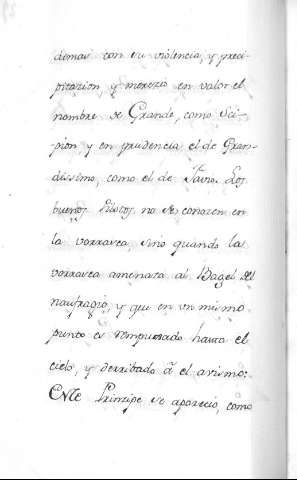 demas con su violencia, y preci-
pitazion, y merezio en valor el
nombre de Grande, como Sci-
pion, y en prudencia el de Gran-
dissimo, como el de Favio. Los
buenos Pilotos no se conozen en
la vorrasca, sino quando la
vorrasca amenaza al Bagel del
naufragio, y que en un mismo
punto es rempuxado hasta el
cielo, y derribado à el avismo:
Este Principe se aparecio, como